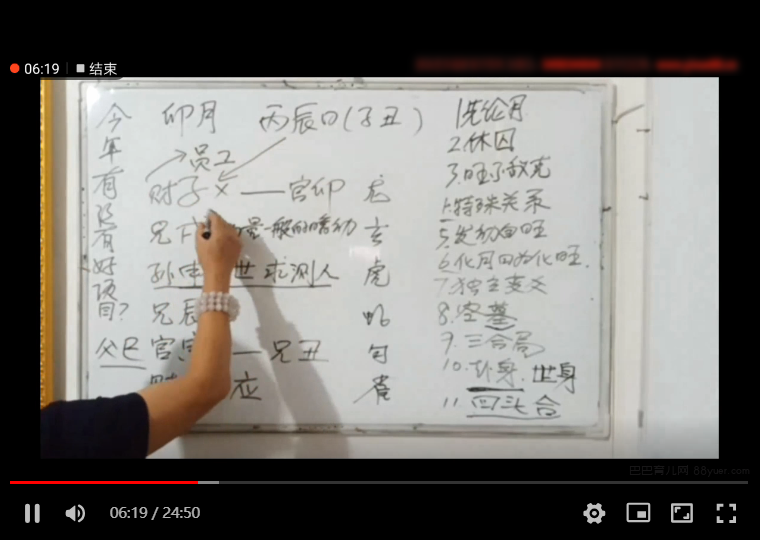 06:19 结束
今年有没有好项目?
卯月 丙辰日(子丑)
员工
财子 × — 官卯 龙
兄戌 一般的暗动 玄
孙申 世 求测人 虎
兄辰 蛇
父巳 官寅 — 兄丑 勾
应 雀
1.先论月
2.休囚
3.旺了敢克
4.特殊关系
5.发动由旺
6.化月日为化旺.
7.独立变爻
8.空墓
9.三合局
10.卦身.世身
11.回头合
巴巴育儿网 88yuer.com
06:19 / 24:50